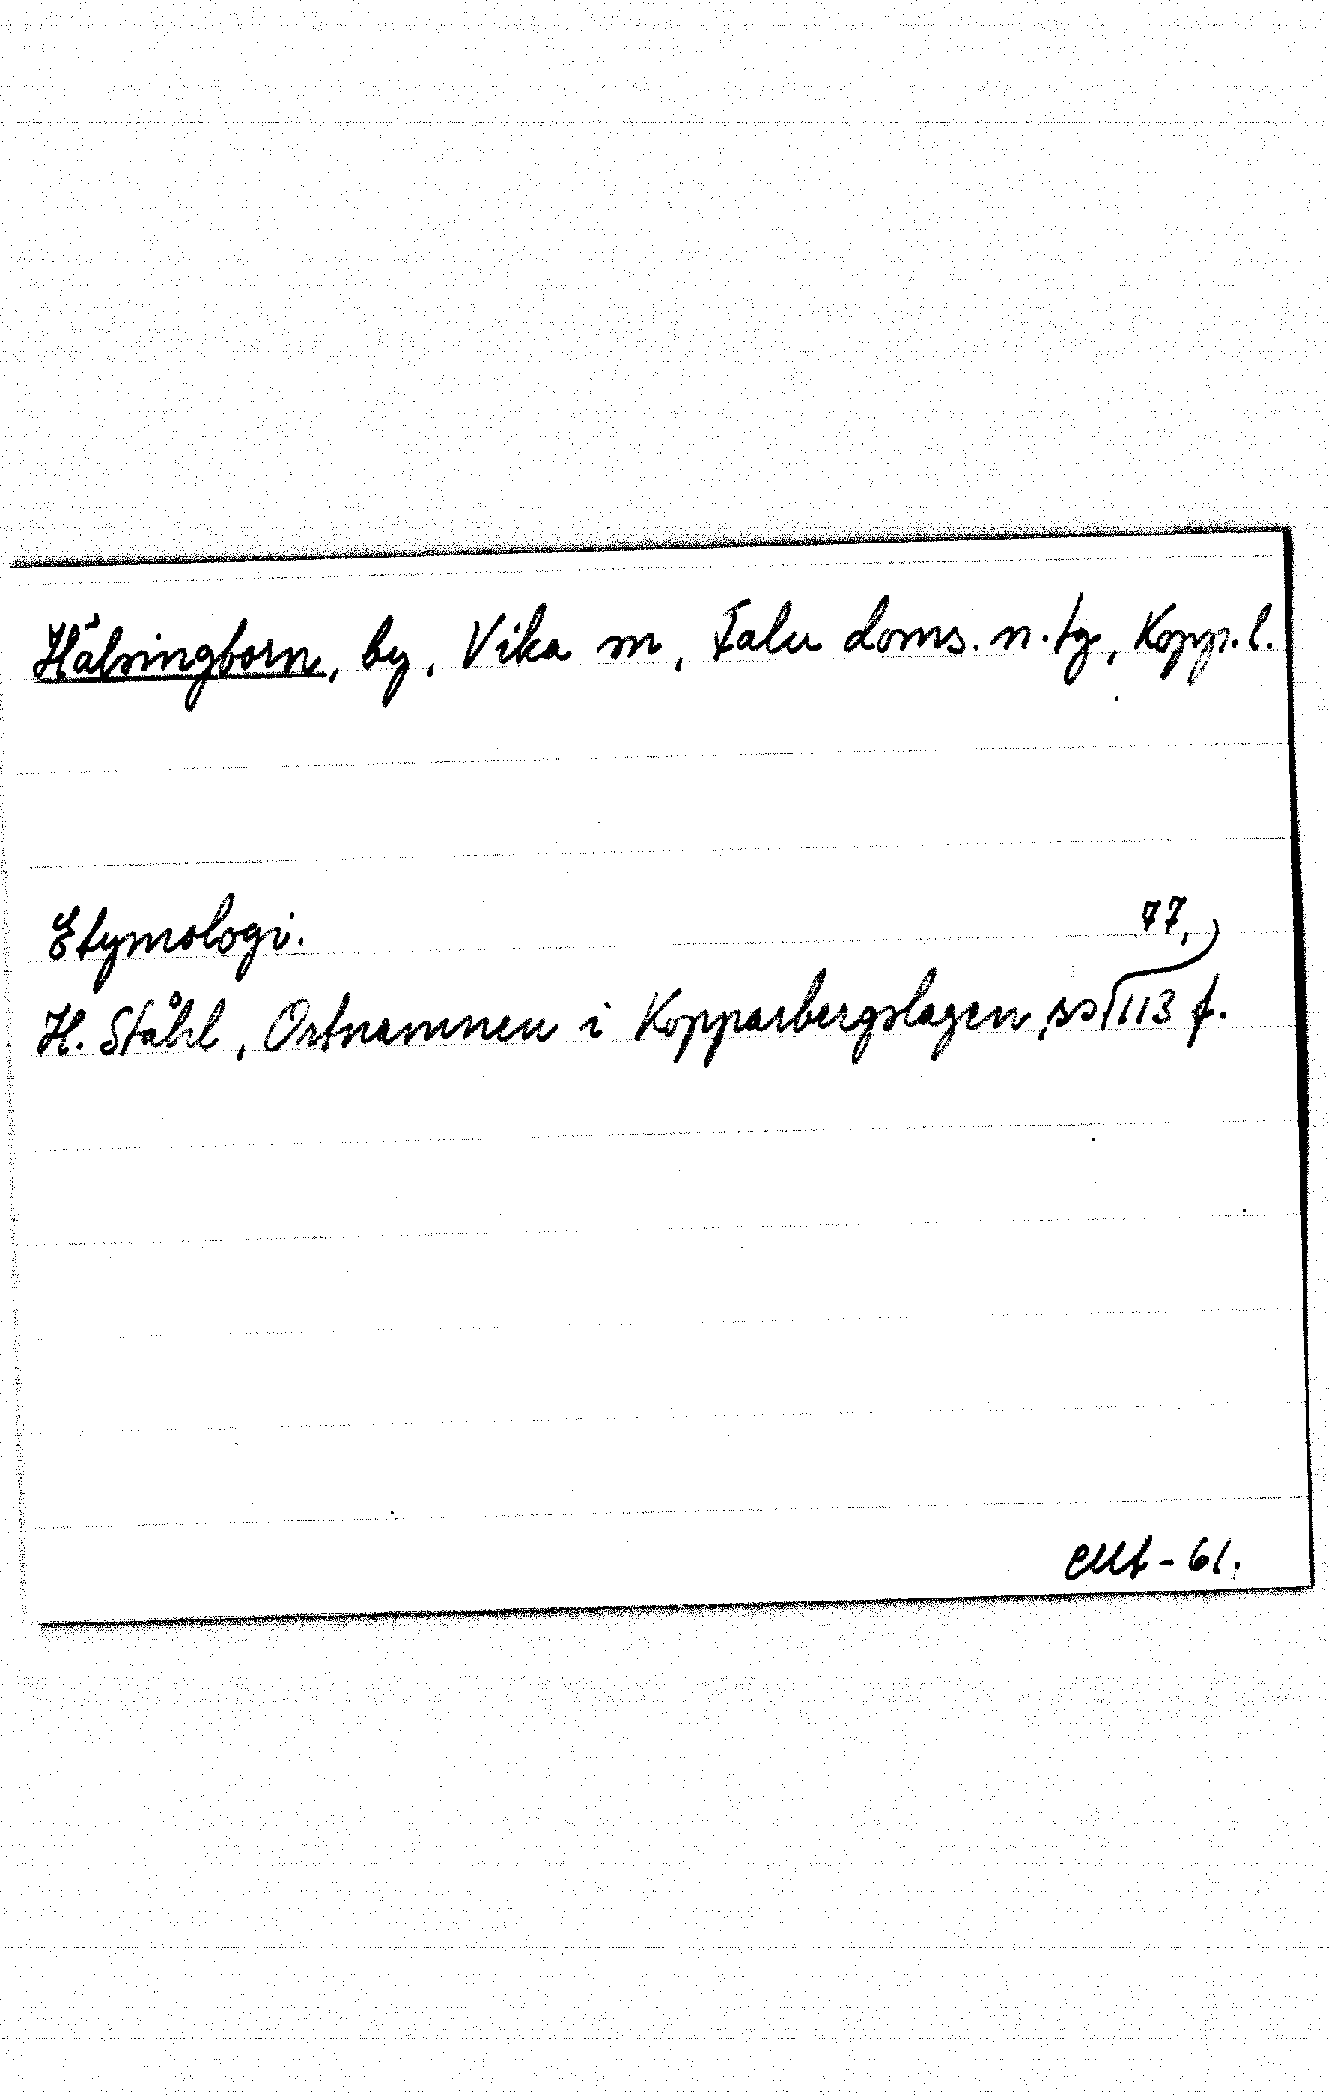 Hälsingborn, by, Vika sn, Falu doms. n. tg, Kopp. l.
Etymologi.
H. Ståhl, Ortnamnen i Kopparbergslagen, ss 77, 113 f.
-61.